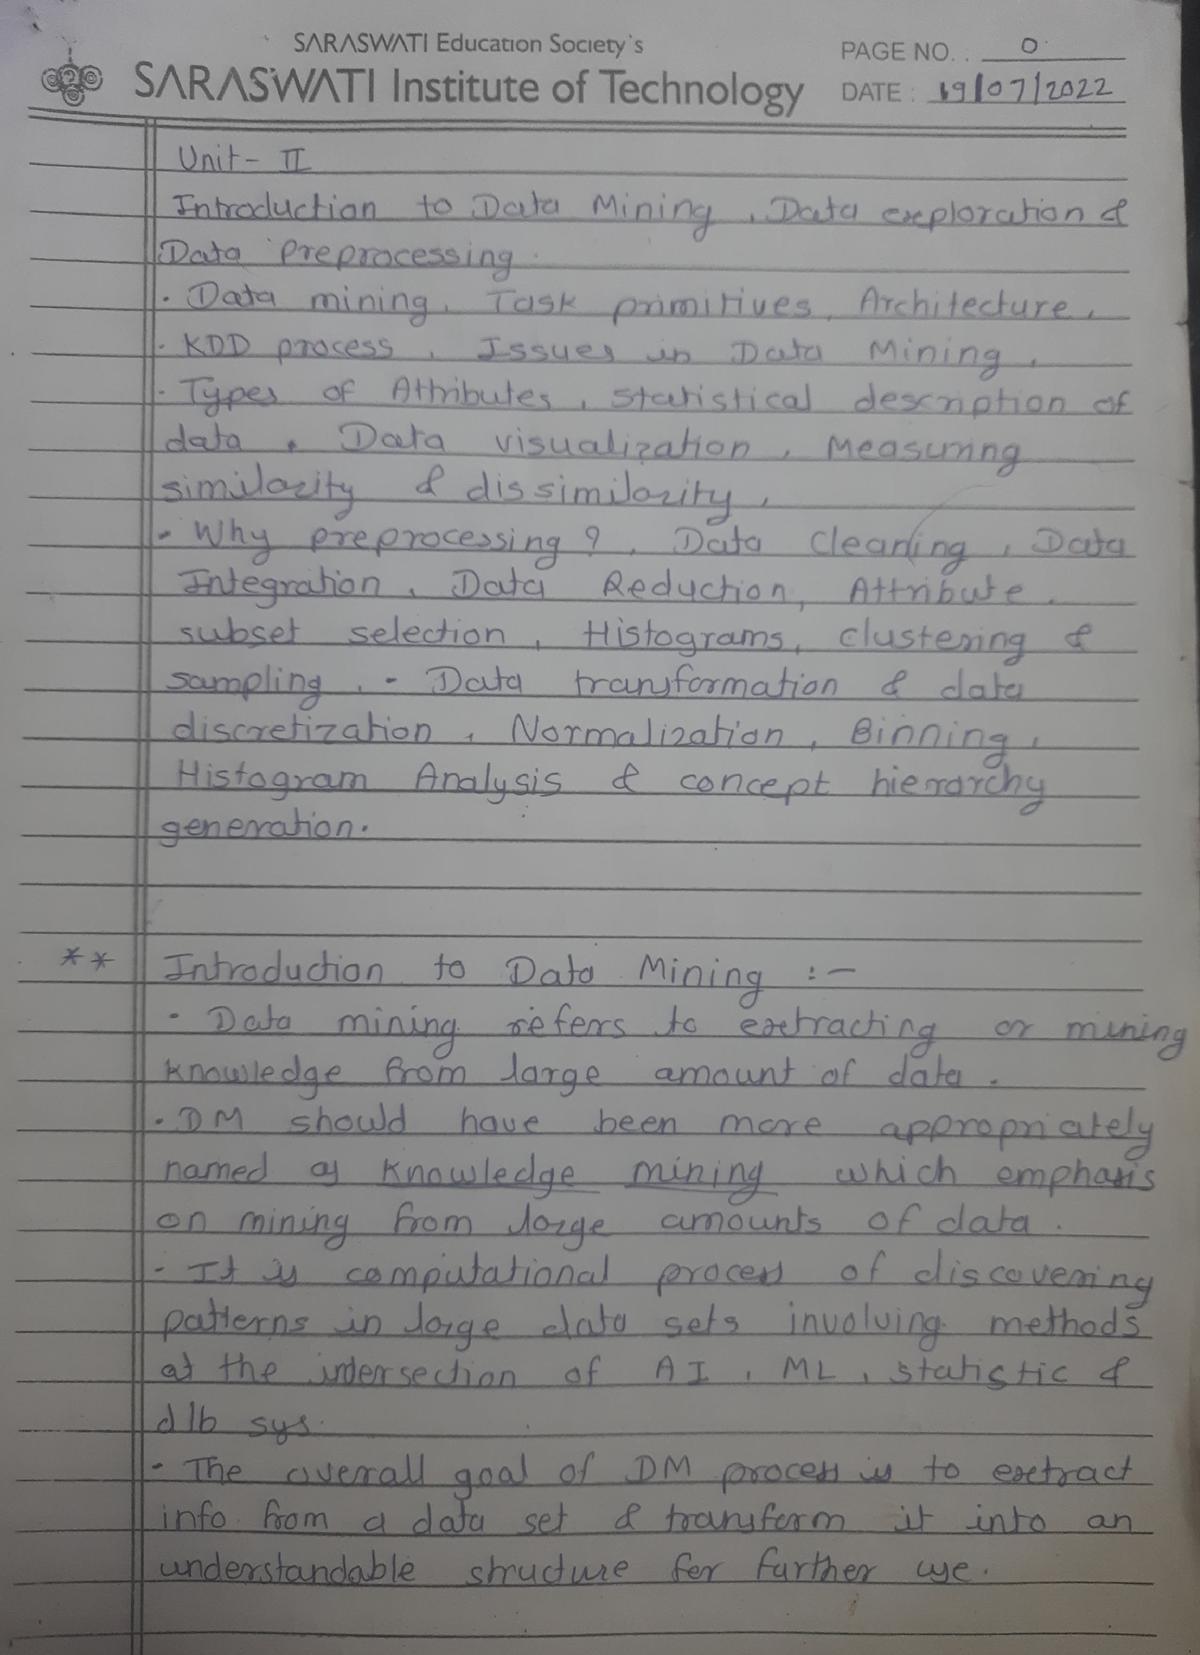 SARASWATI Education Society's
SARASWATI Institute of Technology
PAGE NO. : 0
DATE : 19/07/2022
Unit- II
Introduction to Data Mining, Data exploration &
Data Preprocessing.
· Data mining, Task primitives, Architecture,
· KDD process, Issues in Data Mining,
· Types of Attributes, statistical description of
data, Data visualization, Measuring
similarity & dissimilarity,
- Why preprocessing?, Data cleaning, Data
Integration, Data Reduction, Attribute
subset selection, Histograms, clustering &
sampling, - Data transformation & data
discretization, Normalization, Binning,
Histogram Analysis & concept hierarchy
generation.
** Introduction to Data Mining :-
· Data mining refers to extracting or mining
knowledge from large amount of data.
· DM should have been more appropriately
named as knowledge mining which emphasis
on mining from large amounts of data.
· It is computational process of discovering
patterns in large data sets involving methods
at the intersection of AI, ML, statistic &
d/b sys.
· The overall goal of DM process is to extract
info from a data set & transform it into an
understandable structure for further use.